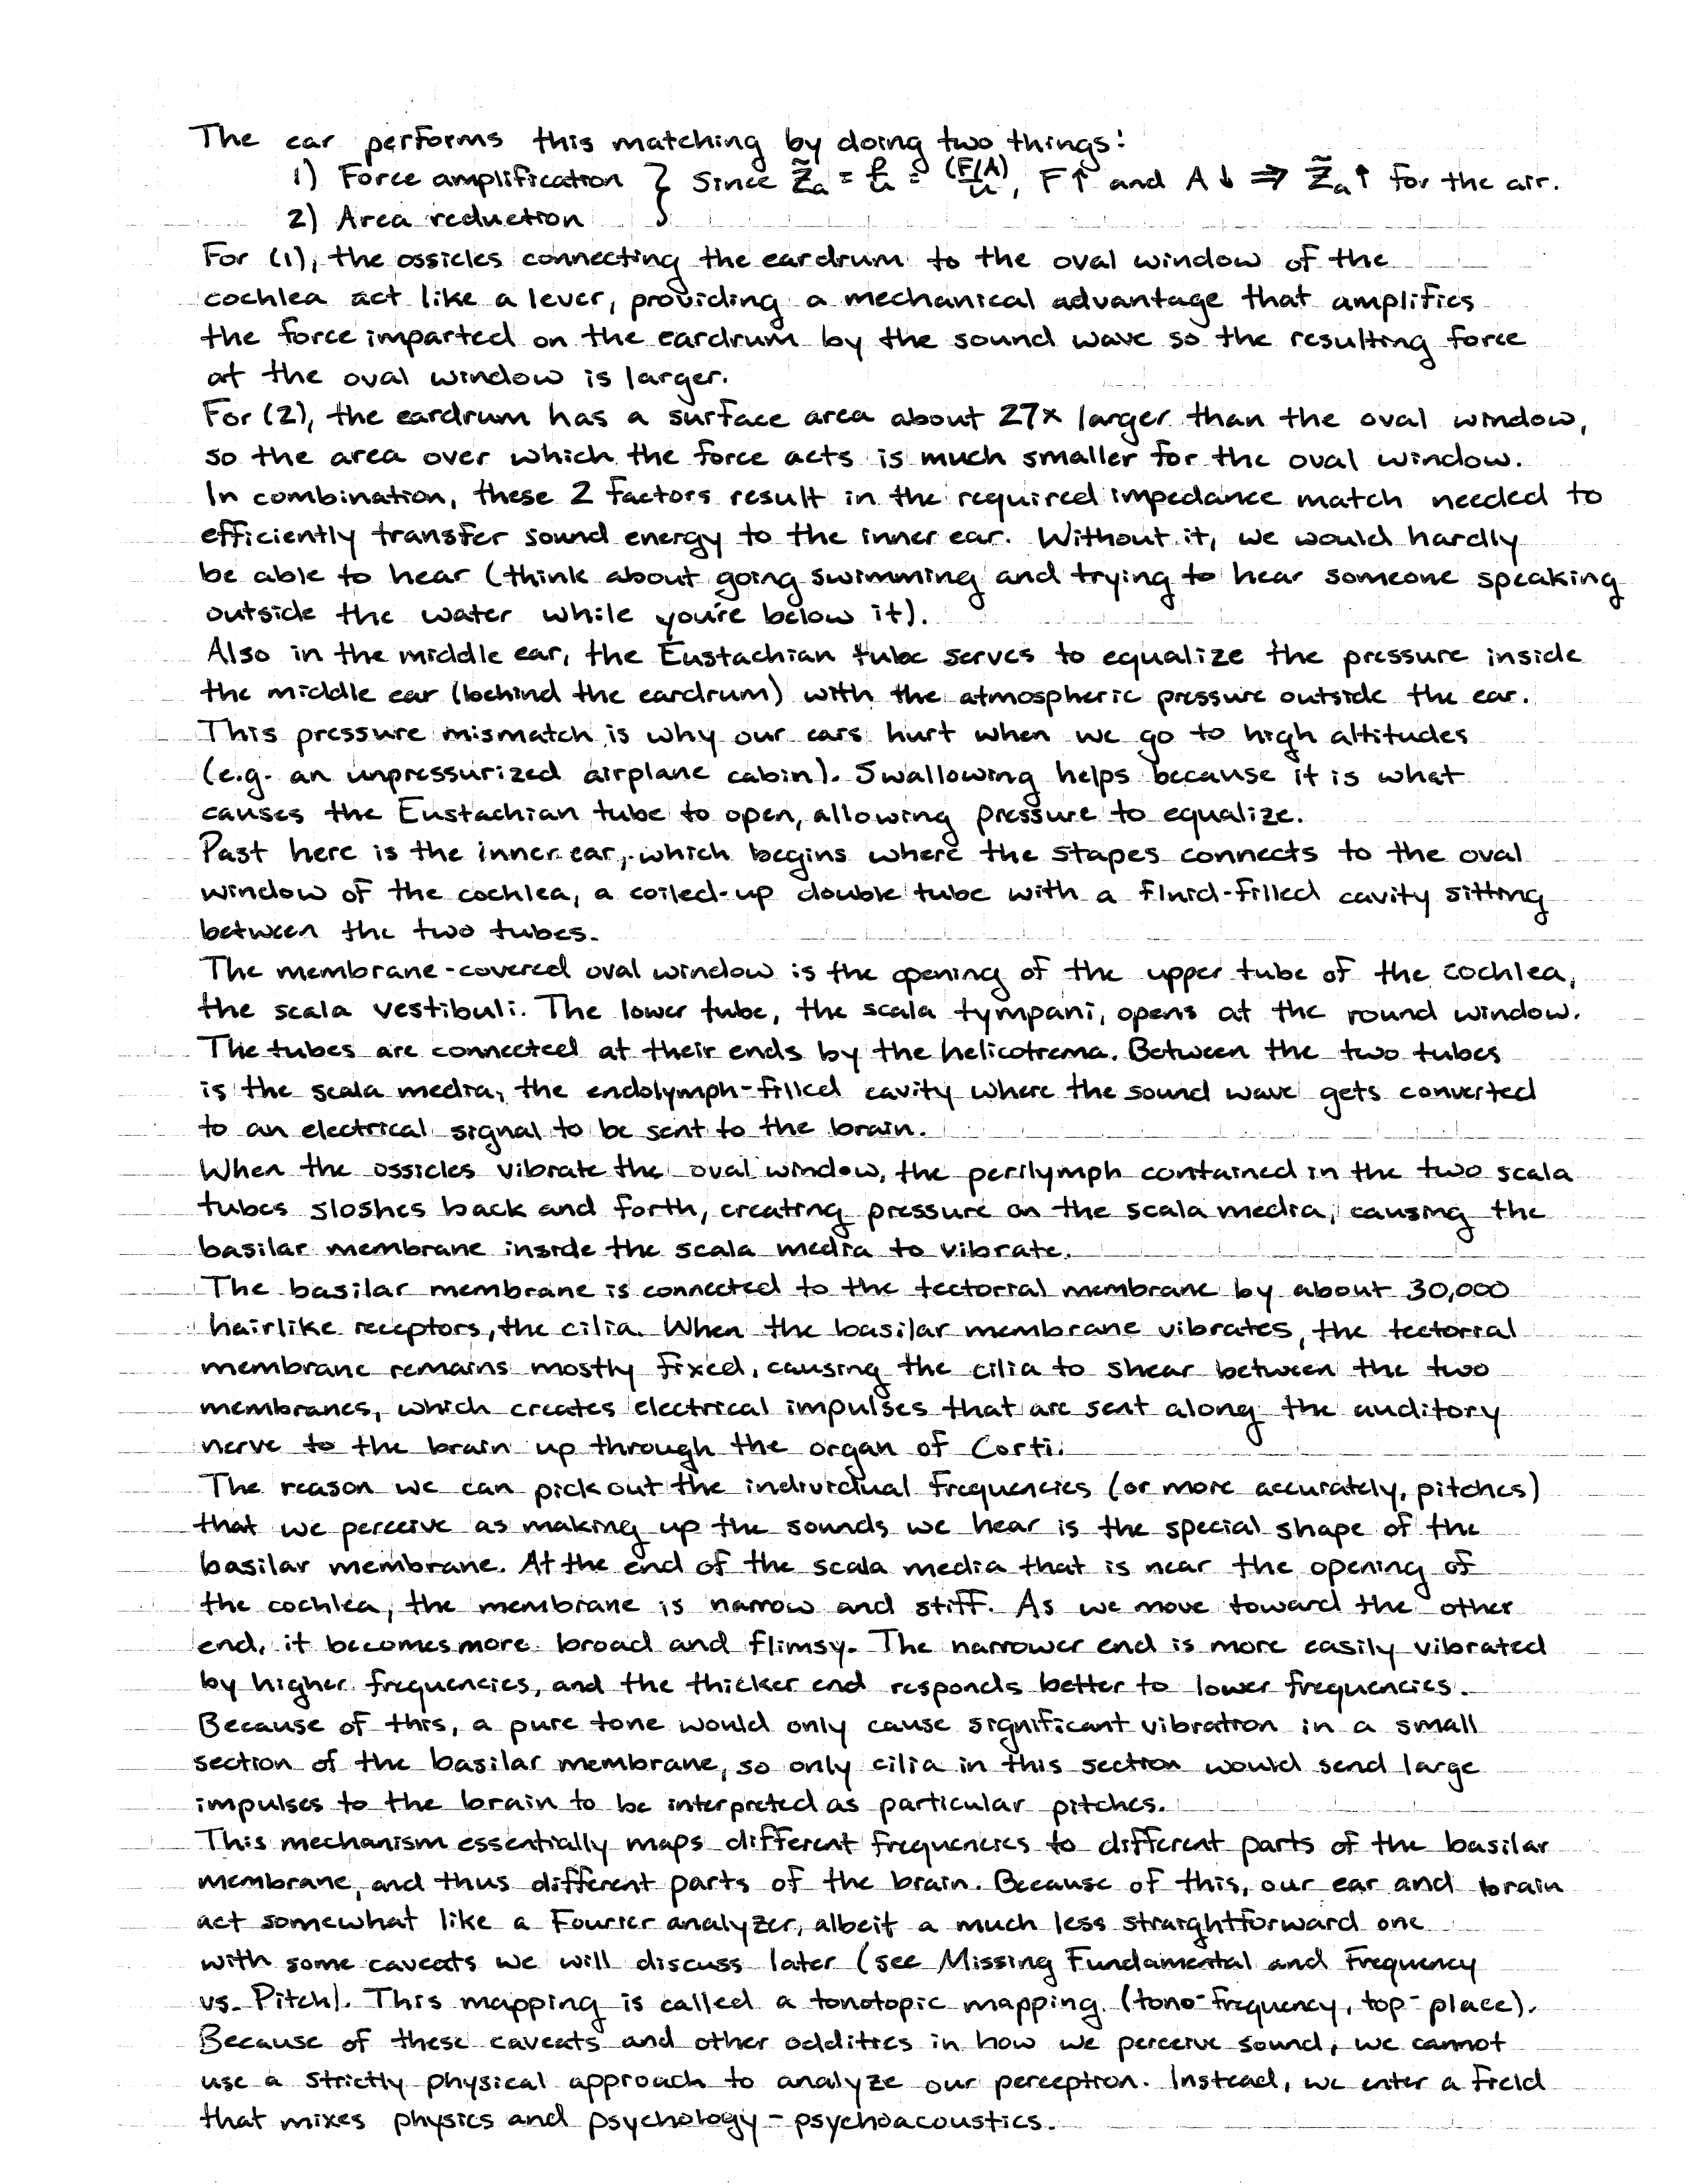 The ear performs this matching by doing two things:
1) Force amplification } Since Z̃ₐ = p/u = (F/A)/u, F↑ and A↓ ⇒ Z̃ₐ↑ for the air.
2) Area reduction
For (1), the ossicles connecting the eardrum to the oval window of the
cochlea act like a lever, providing a mechanical advantage that amplifies
the force imparted on the eardrum by the sound wave so the resulting force
at the oval window is larger.
For (2), the eardrum has a surface area about 27x larger than the oval window,
so the area over which the force acts is much smaller for the oval window.
In combination, these 2 factors result in the required impedance match needed to
efficiently transfer sound energy to the inner ear. Without it, we would hardly
be able to hear (think about going swimming and trying to hear someone speaking
outside the water while you're below it).
Also in the middle ear, the Eustachian tube serves to equalize the pressure inside
the middle ear (behind the eardrum) with the atmospheric pressure outside the ear.
This pressure mismatch is why our ears hurt when we go to high altitudes
(e.g. an unpressurized airplane cabin). Swallowing helps because it is what
causes the Eustachian tube to open, allowing pressure to equalize.
Past here is the inner ear, which begins where the stapes connects to the oval
window of the cochlea, a coiled-up double tube with a fluid-filled cavity sitting
between the two tubes.
The membrane-covered oval window is the opening of the upper tube of the cochlea,
the scala vestibuli. The lower tube, the scala tympani, opens at the round window.
The tubes are connected at their ends by the helicotrema. Between the two tubes
is the scala media, the endolymph-filled cavity where the sound wave gets converted
to an electrical signal to be sent to the brain.
When the ossicles vibrate the oval window, the perilymph contained in the two scala
tubes sloshes back and forth, creating pressure on the scala media, causing the
basilar membrane inside the scala media to vibrate.
The basilar membrane is connected to the tectorial membrane by about 30,000
hairlike receptors, the cilia. When the basilar membrane vibrates, the tectorial
membrane remains mostly fixed, causing the cilia to shear between the two
membranes, which creates electrical impulses that are sent along the auditory
nerve to the brain up through the organ of Corti.
The reason we can pick out the individual frequencies (or more accurately, pitches)
that we perceive as making up the sounds we hear is the special shape of the
basilar membrane. At the end of the scala media that is near the opening of
the cochlea, the membrane is narrow and stiff. As we move toward the other
end, it becomes more broad and flimsy. The narrower end is more easily vibrated
by higher frequencies, and the thicker end responds better to lower frequencies.
Because of this, a pure tone would only cause significant vibration in a small
section of the basilar membrane, so only cilia in this section would send large
impulses to the brain to be interpreted as particular pitches.
This mechanism essentially maps different frequencies to different parts of the basilar
membrane, and thus different parts of the brain. Because of this, our ear and brain
act somewhat like a Fourier analyzer, albeit a much less straightforward one
with some caveats we will discuss later (see Missing Fundamental and Frequency
vs. Pitch). This mapping is called a tonotopic mapping. (tono-frequency, top-place).
Because of these caveats and other oddities in how we perceive sound, we cannot
use a strictly physical approach to analyze our perception. Instead, we enter a field
that mixes physics and psychology - psychoacoustics.